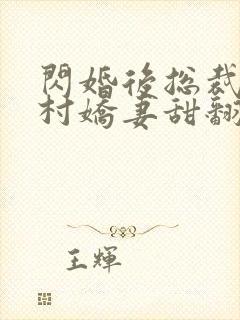 閃婚後総裁
村嬌妻甜翻
王輝